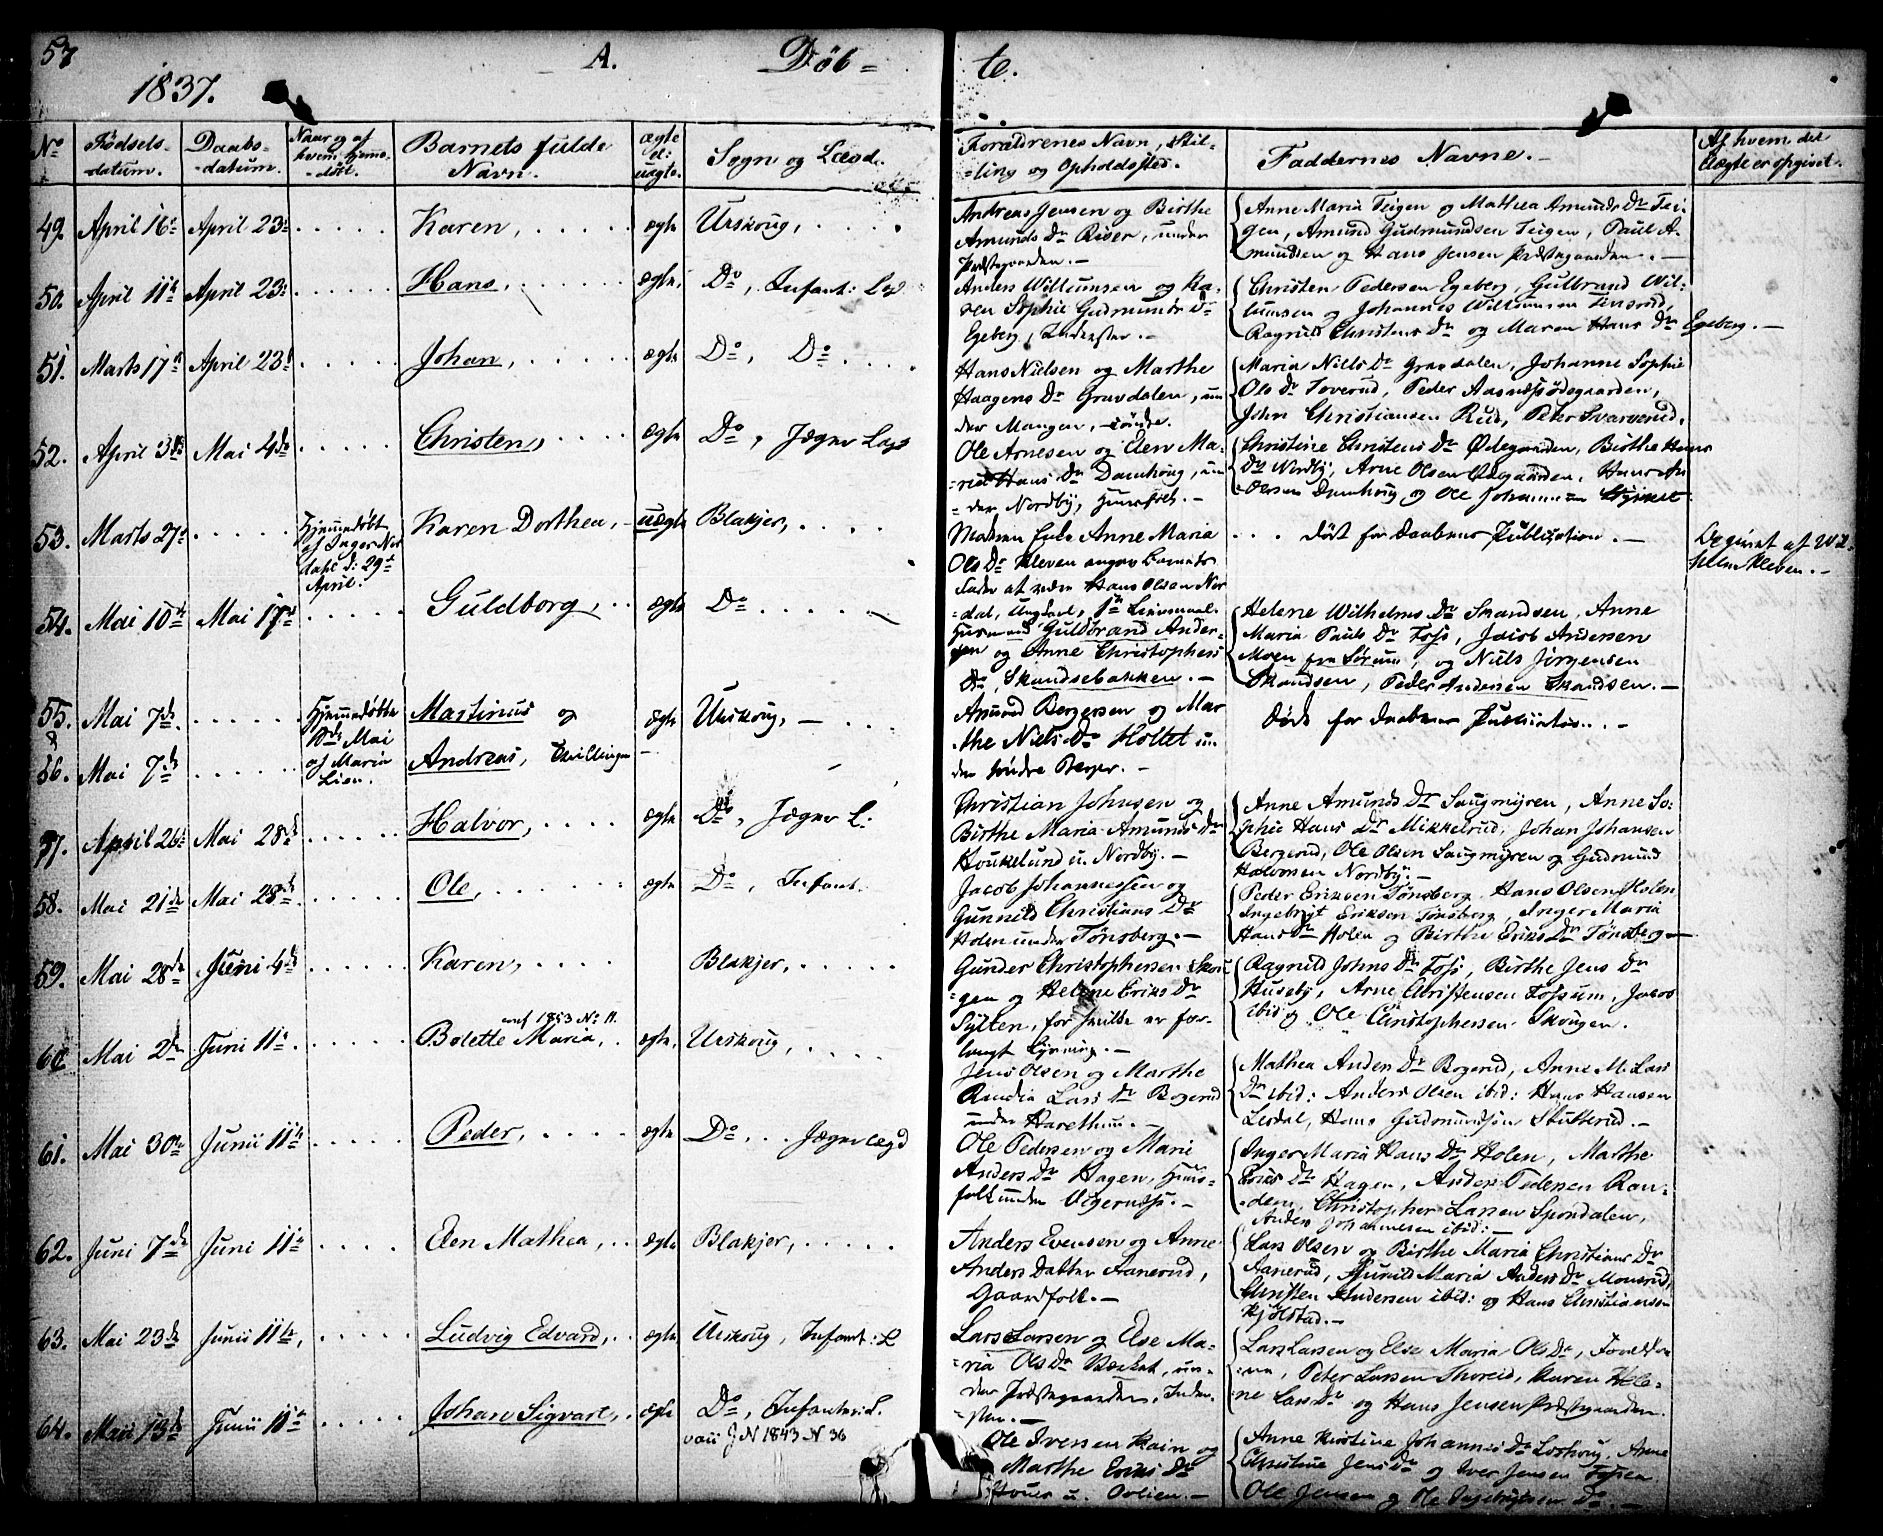 57 A. Døb= te.
1837.
No Fødsels-datum. Daabs-datum. Naar og af hvem hjemmedøbt. Barnets fulde Navn. ægte el: uægte. Sogn og Lægd. Forældrenes Navn, Stilling og Opholdssted. Faddernes Navne. Af hvem det Uægte er opgivet.
49. April 16de April 23de Karen, ægte Urskoug,
Andreas Jensen og Birthe
Amunds Dr Riser, under
Præstegaarden.
Anne Maria Teigen og Mathea Amunds Dr Tei-
gen, Amund Gudmundsen Teigen, Paul A-
mundsen og Hans Jensen Præstegaarden.
50. April 11te April 23de Hans, ægte, Do, Infant: Lægd
Anders Willumsen og Ka-
ren Sophie Gudmunds Dr
Egeberg, Inderster.
Christen Pedersen Egeberg, Gulbrand Wil-
lumsen og Johannes Willumsen
Ragnild Christens Dr og Maren Hans Dr Egeberg.
51. Marts 17de April 23de Johan, ægte Do, Do.
Hans Nielsen og Marthe
Haagens Dr Gravdalen, un
der Mangen, søndre.
Maria Niels Dr Gravdalen, Johanne Sophie
Ols Dr Toverud, Peder
John Christiansen Rud, Peter Svarverud.
52. April 3die Mai 4de Christen, ægte Do, Jæger Lægd
Ole Arnesen og Elen Ma-
ria Hans Dr Damhoug, un
der Nordby, Huusfolk.
Christine Christens Dr Ødegaarden, Birthe Hans
Dr Nordby, Arne Olsen Ødegaarden, Hans An
dersen Damhoug og Ole Johannesen
53. Marts 27de Hjemmedøbt
af Inger Nor
dahl d: 29de
April. Karen Dorthea, uægte Blakjer,
Anne Maria
Ols Dr Kleven angav Barnets
Fader at være Hans Olsen Nor
dal, Ungkarl,
Død før Daabens Publication. Opgivet af Wil-
helm Kleven.
54. Mai 10de Mai 17de Guldborg, ægte Do
Guldbrand Ander-
sen og Anne Christophers
Dr, Skandsebakken.
Helene Wilhelms Dr Skandsen, Anne
Maria Pauls Dr Foss, Jacob Andersen
Moen fra Sørum, og Niels Jørgensen
Skandsen, Peder Andersen Skandsen.
55. Mai 7de Hjemmedøbte
Mai
af Maria
Lien. Martinus og ægte Urskoug,
&
56. Mai 7de Andreas, Tvillinger
Amund Bergersen og Mar
the Niels Dr Holtet un
der søndre Berger.
Døde før Daabens Publication.
57. April 26de Mai 28de Halvor, ægte Do, Jæger L:
Christian Johnsen og
Birthe Maria Amunds Dr
Houkelund u. Nordby.
Anne Amunds Dr Saugmyren, Anne So-
phie Hans Dr Mikkelrud, Johan Johansen
Bergerud, Ole Olsen Saugmyren og Gudmund
Halvorsen Nordby.
58. Mai 21de Mai 28de Ole, ægte Do, Infant.
Jacob Johannessen og
Gunnild Christians Dr
Holen under Tønsberg.
Peder Eriksen Tønsberg, Hans Olsen Holen
Ingebrigt Eriksen Tønsberg, Inger Maria
Hans Dr Holen og Birthe Eriks Dr Tønsberg
59. Mai 28de Juni 4de Karen, Blakjer,
Gunder Christophersen Skou
gen og Helene Eriks Dr
Sylten, for hvilke er for-
langt Lysning.
Ragnild Johns Dr Foss, Birthe Jens Dr
Huseby, Arne Christensen Fossum, Jacob
ibid og Ole Christophersen Skougen.
60. Mai 2den Juni 11te conf 1853 No 11.
Bolette Maria, ægte, Urskoug,
Jens Olsen og Marthe
Lars Dr Bogerud
under Harethun.
Mathea Anders Dr Bogerud, Anne M. Lars
Dr ibid: Anders Olsen ibid: Hans Hansen
Lerdal, Hans Gudmundsen
61. Mai 30te Junii 11te Peder, ægte Do, Jæger Lægd
Ole Pedersen og Marie
Anders Dr Hagen, Huus-
folk under
Inger Maria Hans Dr Holen, Marthe
Dr Hagen, Anders Pedersen Ran-
dem, Christopher Larsen Spondalen,
Anders Johannesen ibid:
62. Juni 7de Juni 11te Elen Mathea, ægte Blakjer,
Anders Evensen og Anne
Anders Datter Aanerud,
Gaardfolk.
Lars Olsen og Birthe Maria Christians Dr
Aanerud, Gunild Maria Anders Dr Monsrud,
Christen Andersen ibid: og Hans Christiansen
Kjølstad.
63. Mai 23de Junii 11te, Ludvig Edvard, ægte Urskoug, Infant: L
Lars Larsen og Else Ma-
ria Ols Dr Bækket, un-
der Præstegaarden, Inder-
ster.
Lars Larsen og Else Maria Ols Dr, Foreldre
ne, Peter Larsen Thoreid, Karen Hele-
ne Lars Dr og Hans Jensen Præstegaarden.
64. Maii 13de Junii 11te Johan Sigvart, ægte Do, Infanteri L.
vacc J N 1843 N 36
Ole Iversen Kain og
Marthe Eriks Dr
u.
Anne Kirstine Johannes Dr Loshoug, Anne
Christine Jens Dr og Iver Jensen
Ole Jensen og Ole Ingebrigtsen Do.